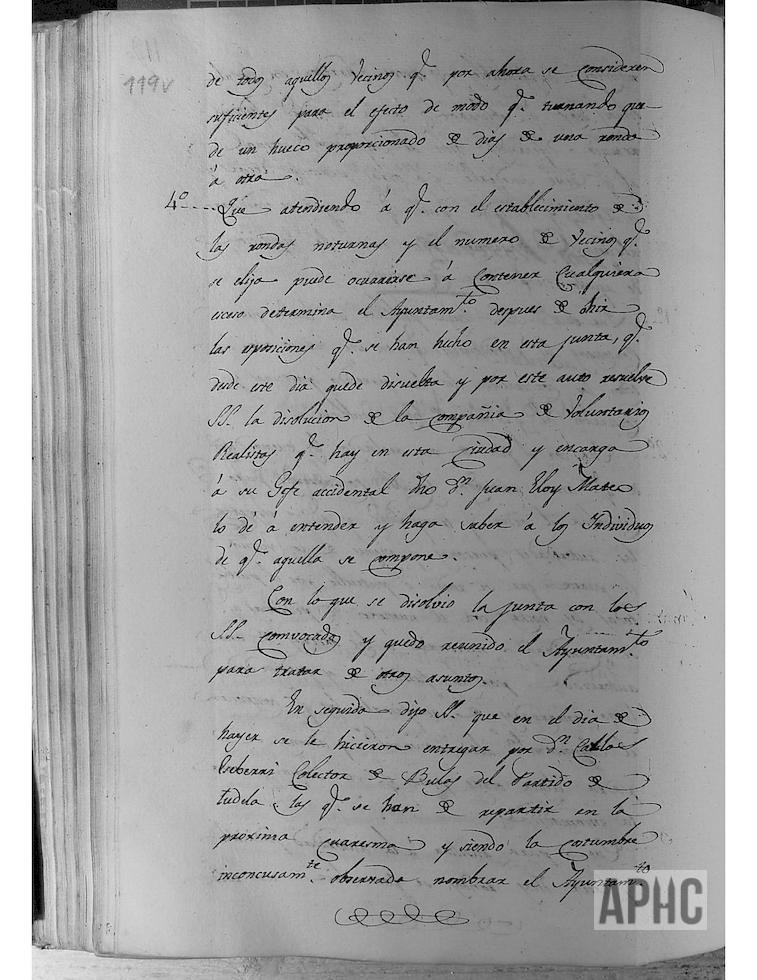 119v
de todos aquellos Vecinos q.e por ahora se consideren
suficientes para el efecto de modo q.e turnando que-
de un hueco proporcionado de dias de una ronda
á otra.
4º Que atendiendo á q.e con el establecimiento de
las rondas noturnas y el numero de Vecinos q.e
se elija puede ocurrirse á Contener Cualquiera
exceso determina el Ayuntam.to despues de ohir
las oposiciones q.e se han hecho en esta junta, q.e
desde este dia quede disuelta y por este auto resuelve
SS. la disolucion de la compañia de Voluntarios
Realistas q.e hay en esta Ciudad y encarga
á su Gefe accidental dho d.n Juan Eloy Mateo
lo dé á entender y haga saber á los Individuos
de q.e aquella se compone.
Con lo que se disolvio la junta con los
SS. Convocados y quedo reunido el Ayuntam.to
para tratar de otros asuntos.
En seguida dijo SS. que en el dia de
hayer se le hicieron entregar por d.n Carlos
Colector de Bulas del Partido de
tudela las q.e se han de repartir en la
próxima cuaresma y siendo la costumbre
inconcusam.te observada nombrar el Ayuntam.to
APHC